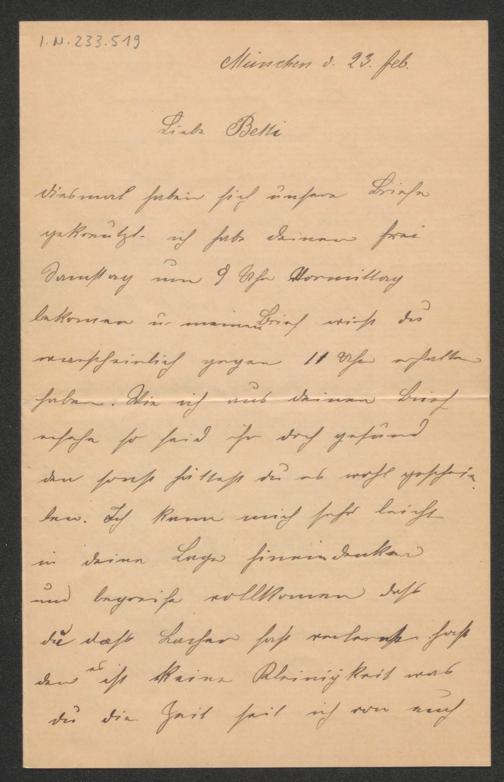 I.N. 233.519
München d. 23. Feb.
Liebe Betti
diesmal haben sich unsere Briefe
gekreutzt. ich habe deinen frei
Samstag um 9 Uhr Vormittag
bekomen u. meinen Brief wirst du
warscheinlich gegen 11 Uhr erhalten
haben. Wie ich aus deinen Brief
ersehe so seid ihr doch gesund
den sonst hättest du es wohl geschrie
ben. Ich kann mich sehr leicht
in deine Lage hineindenken
und begreife vollkomen daß
du daß Lachen hast verlernt
den es ist keine Kleinigkeit was
du die Zeit seit ich von euch